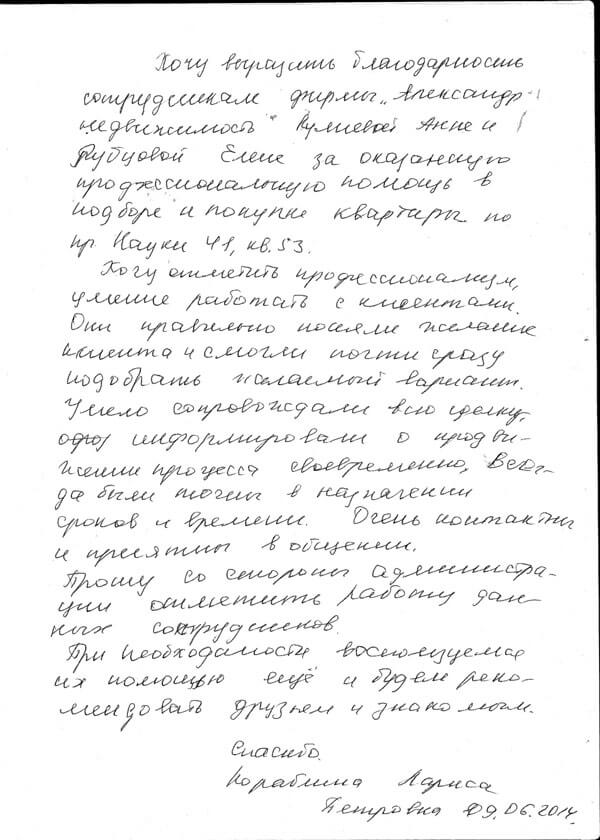 Хочу выразить благодарность
сотрудникам фирмы „Александр-
недвижимость" Анне и
Рубцовой Елене за оказанную
профессиональную помощь в
подборе и покупке квартиры по
пр Науки 41, кв. 53.
Хочу отметить профессионализм,
умение работать с клиентами.
Они правильно поняли желание
клиента и смогли почти сразу
подобрать желаемый вариант.
Умело сопровождали всю сделку,
информировали о продви-
жении процесса своевременно, Всег-
да были точны в назначении
сроков и времени. Очень контактны
и приятны в общении.
Прошу со стороны администра-
ции отметить работу дан-
ных сотрудников.
При необходимости воспользуемся
их помощью ещё и будем реко-
мендовать друзьям и знакомым.
Спасибо.
Кораблина Лариса
Петровна 09.06.2014